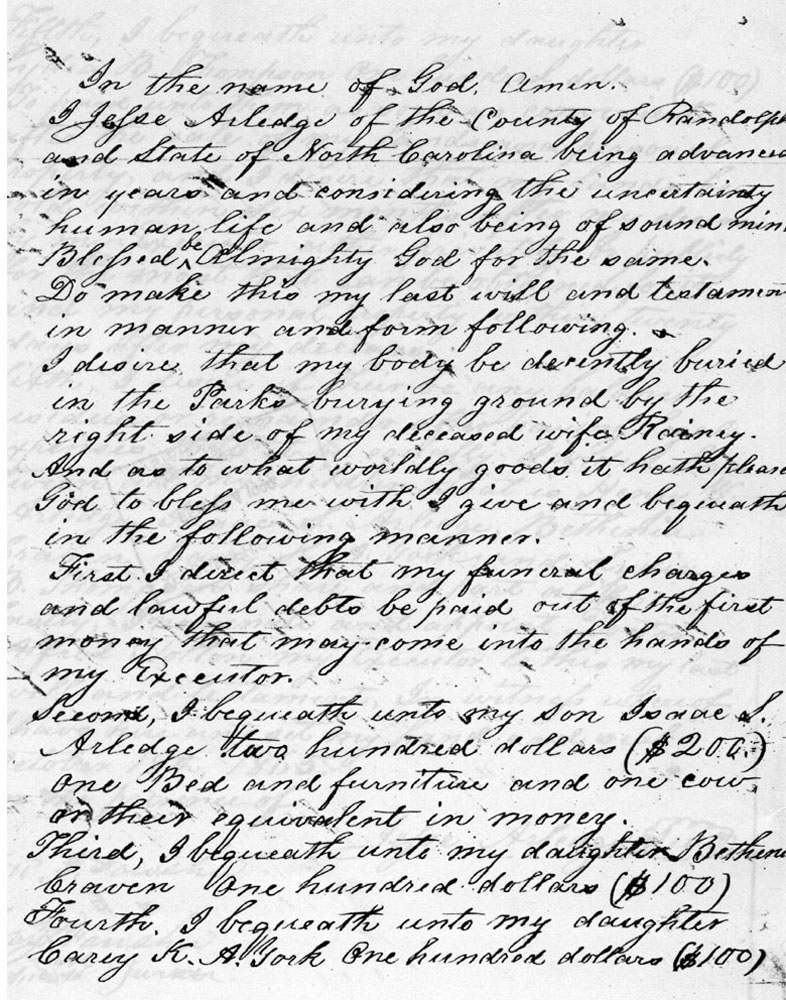 In the name of God, Amen.
I Jesse Arledge of the County of Randolph
and State of North Carolina being advanced
in years and considering the uncertainty
human life and also being of sound mind
Blessed be Almighty God for the same.
Do make this my last will and testamen
in manner and form following.
I desire that my body be decently buried
in the Parks burying ground by the
right side of my deceased wife Rainey.
And as to what worldly goods it hath please
God to bless me with I give and bequeath
in the following manner.
First. I direct that my funeral charges
and lawful debts be paid out of the first
money that may come into the hands of
my Executor.
Second, I bequeath unto my son Isaac S.
Arledge two hundred dollars ($200.)
One Bed and furniture and one cow
or their equivalent in money.
Third, I bequeath unto my daughter Betheni
Craven One hundred dollars ($100)
Fourth. I bequeath unto my daughter
Carey K. A. York One hundred dollars ($100)